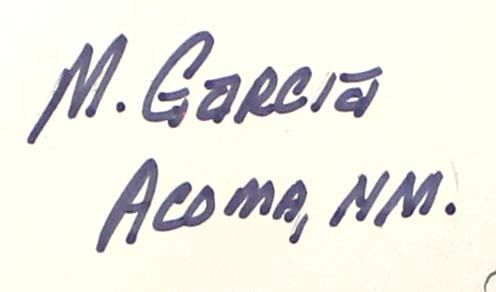 M. Garcia
Acoma, NM.